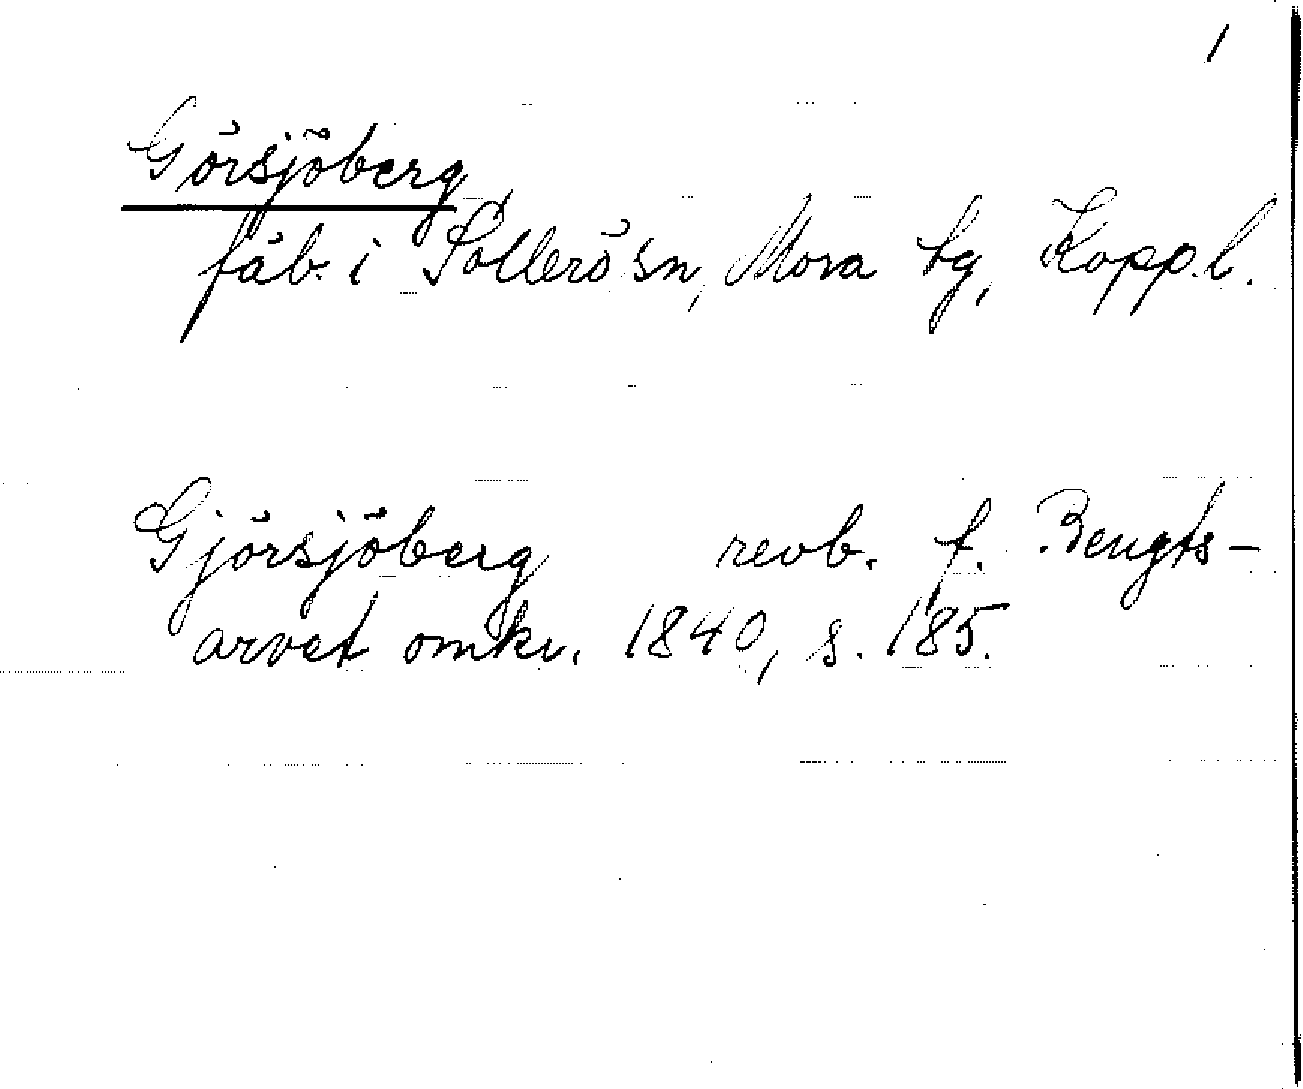 1
Görsjöberg
fäb. i Sollerö sn, Mora tg, Kopp. l.
Gjörsjöberg revb. f. Bengts-
arvet omkr. 1840, s. 185.